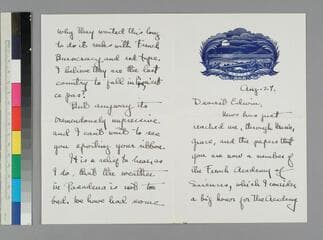 Aug. 29.
Dearest Edwin,
News has just
reached me, through
Grace, and the papers that
you are now a member of
the French Academy of
Sciences, which I consider
a big honor for the Academy
why they waited this long
to do it unless with French
Bureaucracy and red tape.
I believe they are the last
country to fall in
ce pas?
But anyway its
tremendously impressive
and I can't wait to see
you sporting your ribbon.
It is a relief to hear, as
I do, that the weather
in Pasadena is not too
bad. We have had some